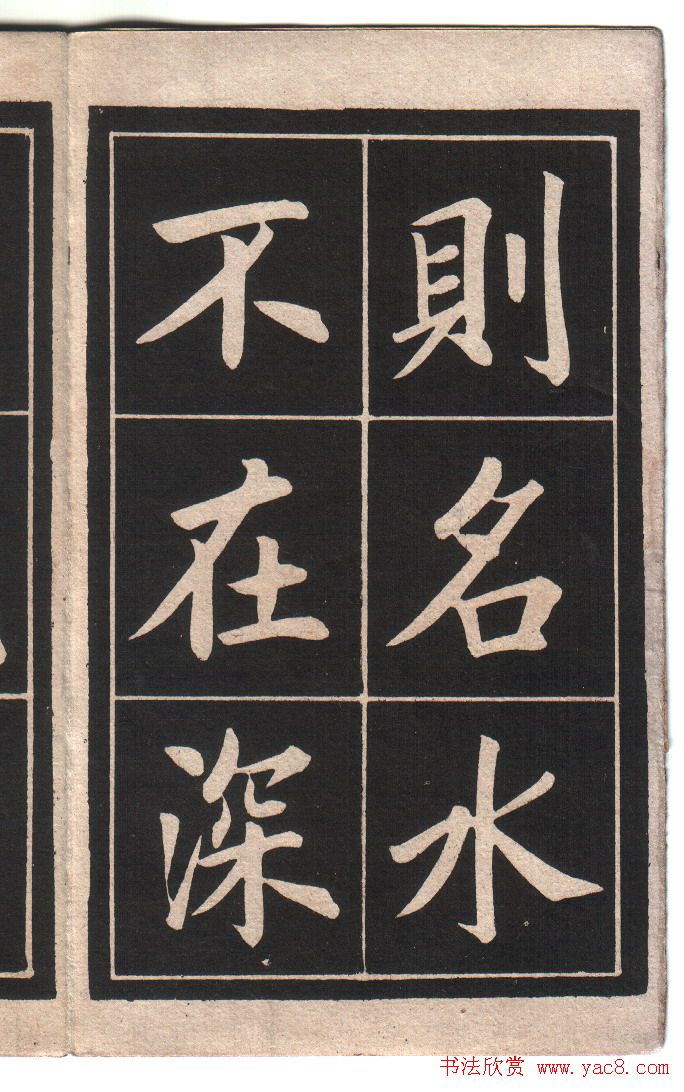 則名水
不在深
书法欣赏 www.yac8.com